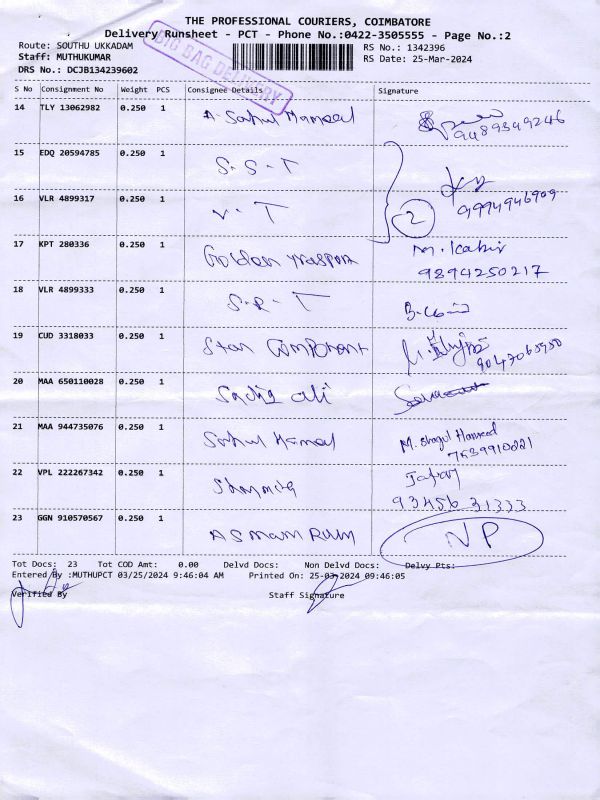 THE PROFESSIONAL COURIERS, COIMBATORE
Delivery Runsheet - PCT - Phone No.:0422-3505555 - Page No.:2
BIG BAG DELIVERY
Route: SOUTHU UKKADAM
Staff: MUTHUKUMAR
DRS No.: DCJB134239602
RS No.: 1342396
RS Date: 25-Mar-2024
S No Consignment No Weight PCS Consignee Details Signature
14 TLY 13062982 0.250 1 A. Sahul Hameed
9489349246
15 EDQ 20594785 0.250 1 S-S-T
16 VLR 4899317 0.250 1 V-T 2
9994946909
17 KPT 280336 0.250 1 Golden M. Kabir
9894250217
18 VLR 4899333 0.250 1 S-R-T
19 CUD 3318033 0.250 1 Star Component
9047065950
20 MAA 650110028 0.250 1 Sadiq ali
21 MAA 944735076 0.250 1 Sahul Hameed M. Shagul Hameed
7639910221
22 VPL 222267342 0.250 1 Jafar
93456 31333
23 GGN 910570567 0.250 1 NP
Tot Docs: 23 Tot COD Amt: 0.00 Delvd Docs: Non Delvd Docs: Delvy Pts:
Entered By :MUTHUPCT 03/25/2024 9:46:04 AM Printed On: 25-03-2024 09:46:05
Verified By Staff Signature